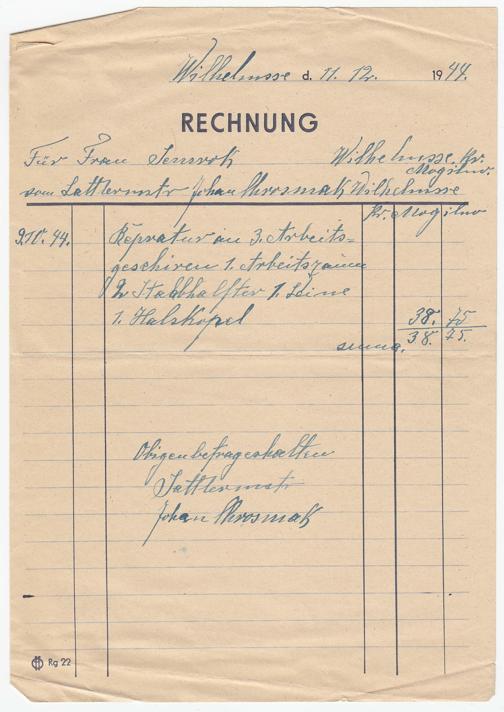 Wilhelmsse d. 11. 12. 1944.
RECHNUNG
Für Frau Wilhelmsse. Kr.
Mogilno.
vom Sattlermstr Johan Wilhelmsse
Kr. Mogilno
44. Repratur an 3. Arbeits=
geschiren 1. Arbeitszäum
2 Stahbhalfter 1. Leine
1. Halskopel 38. 75
suma. 38. 75.
Obigenbetragerhalten
Sattlermstr
Johan
Rg 22